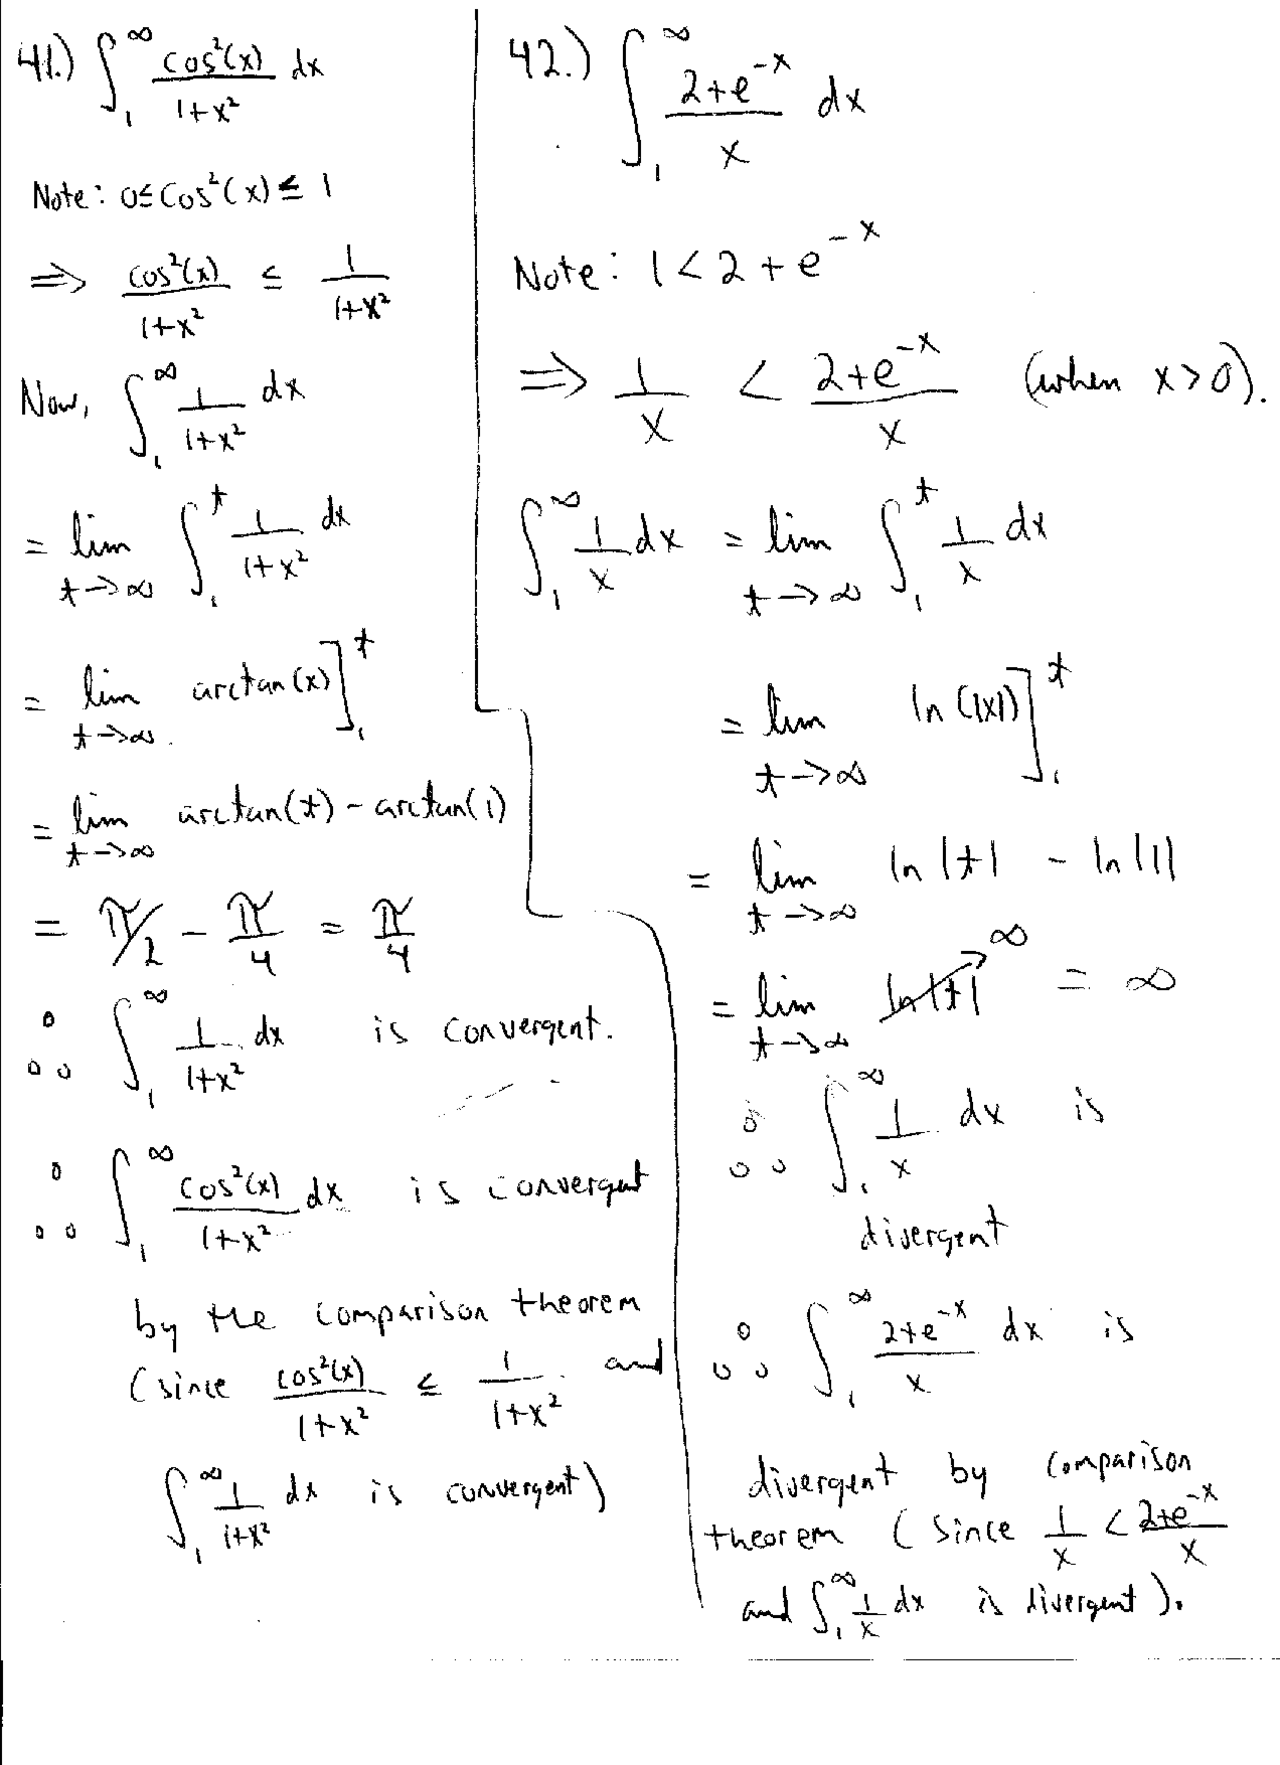 41.) ∫₁^∞ cos²(x)/(1+x²) dx
Note: 0≤cos²(x)≤ 1
⇒ cos²(x)/(1+x²) ≤ 1/(1+x²)
Now, ∫₁^∞ 1/(1+x²) dx
= lim t→∞ ∫₁^t 1/(1+x²) dx
= lim t→∞ arctan(x)]₁^t
= lim t→∞ arctan(t) - arctan(1)
= π/2 - π/4 = π/4
∴ ∫₁^∞ 1/(1+x²) dx is convergent.
∴ ∫₁^∞ cos²(x)/(1+x²) dx is convergent
by the comparison theorem
(since cos²(x)/(1+x²) ≤ 1/(1+x²) and
∫₁^∞ 1/(1+x²) dx is convergent)
42.) ∫₁^∞ (2+e^-x)/x dx
Note: 1 < 2 + e^-x
⇒ 1/x < (2+e^-x)/x (when x>0).
∫₁^∞ 1/x dx = lim t→∞ ∫₁^t 1/x dx
= lim t→∞ ln(|x|)]₁^t
= lim t→∞ ln|t| - ln|1|
= lim t→∞ ln|t| ∞ = ∞
∴ ∫₁^∞ 1/x dx is
divergent
∴ ∫₁^∞ (2+e^-x)/x dx is
divergent by comparison
theorem (since 1/x < (2+e^-x)/x
and ∫₁^∞ 1/x dx is divergent).